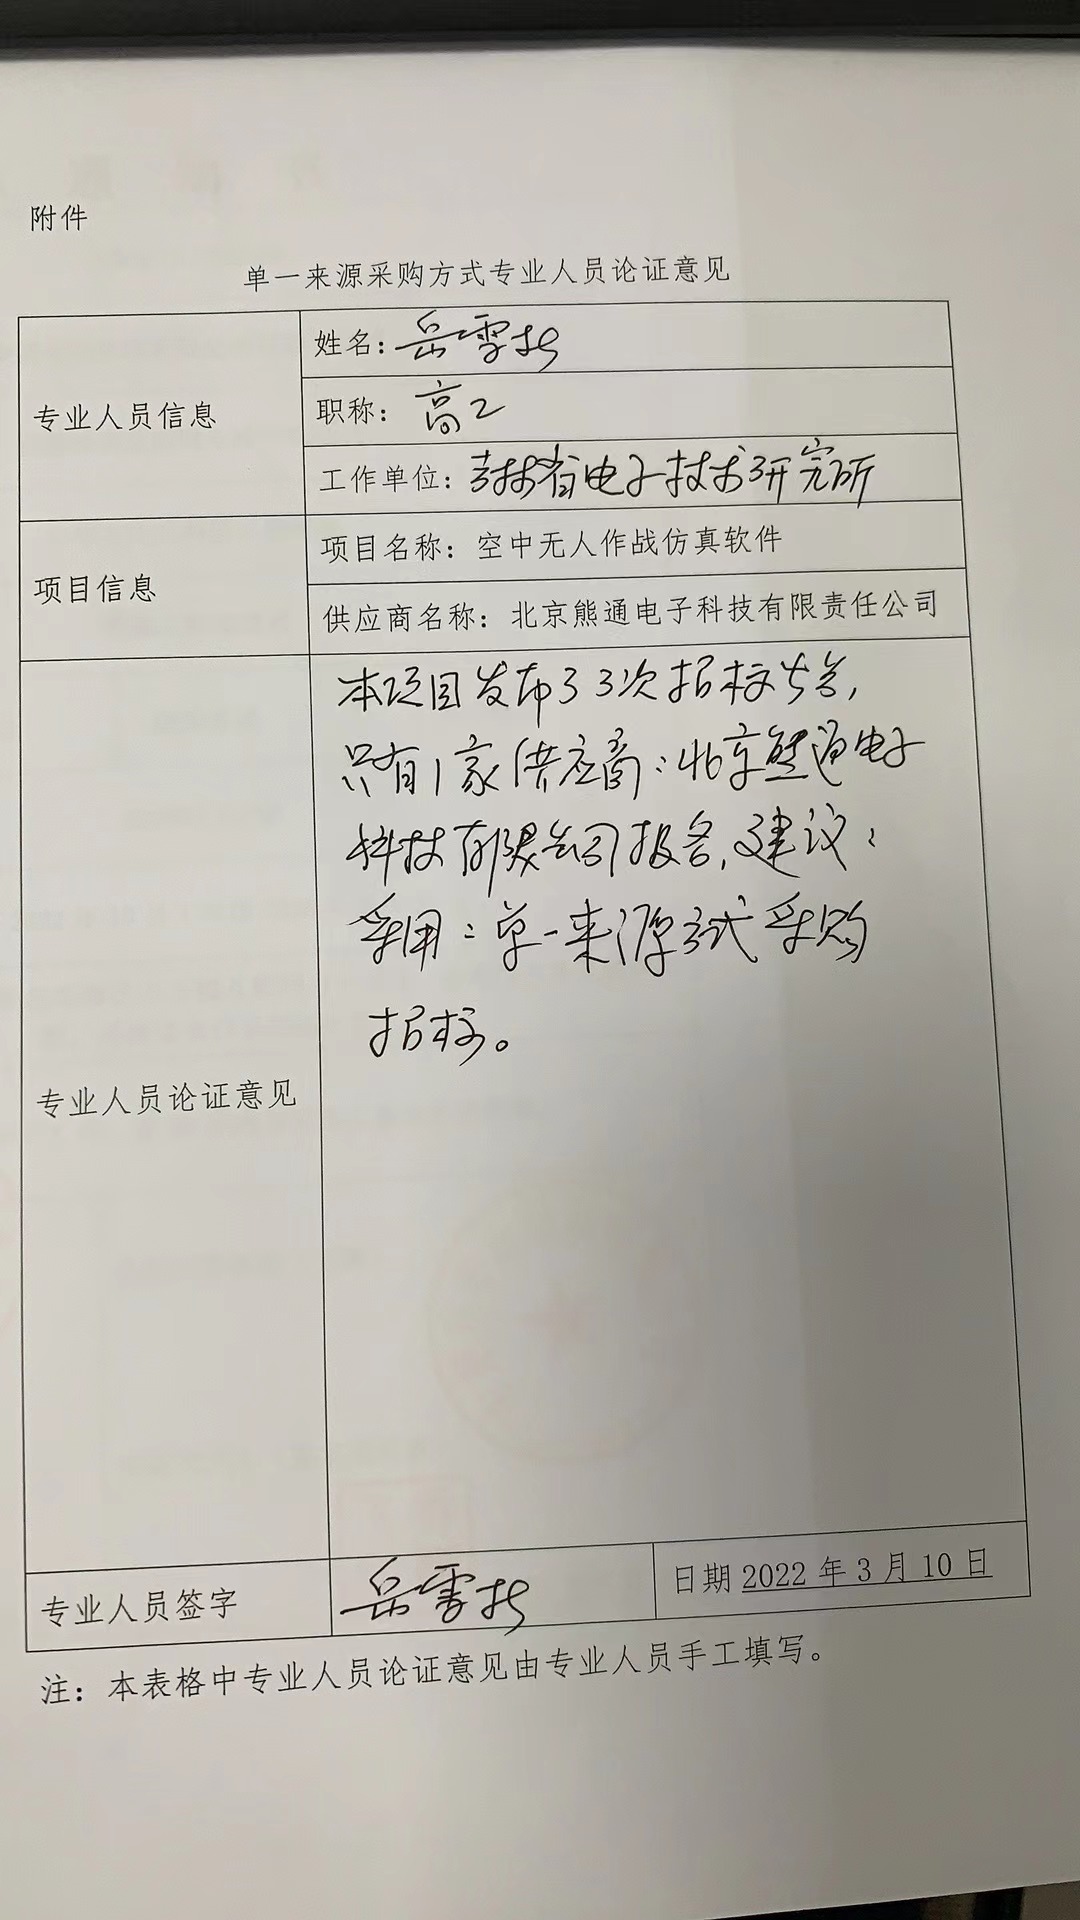 附件
单一来源采购方式专业人员论证意见
专业人员信息
姓名：岳雪松
职称：高工
工作单位：吉林省电子技术研究所
项目信息
项目名称：空中无人作战仿真软件
供应商名称：北京熊通电子科技有限责任公司
专业人员论证意见
本项目发布了3次招标公告，
只有1家供应商：北京熊通电子
科技有限公司报名，建议：
采用：单一来源方式采购
招标。
专业人员签字
岳雪松
日期 2022 年 3 月 10 日
注：本表格中专业人员论证意见由专业人员手工填写。